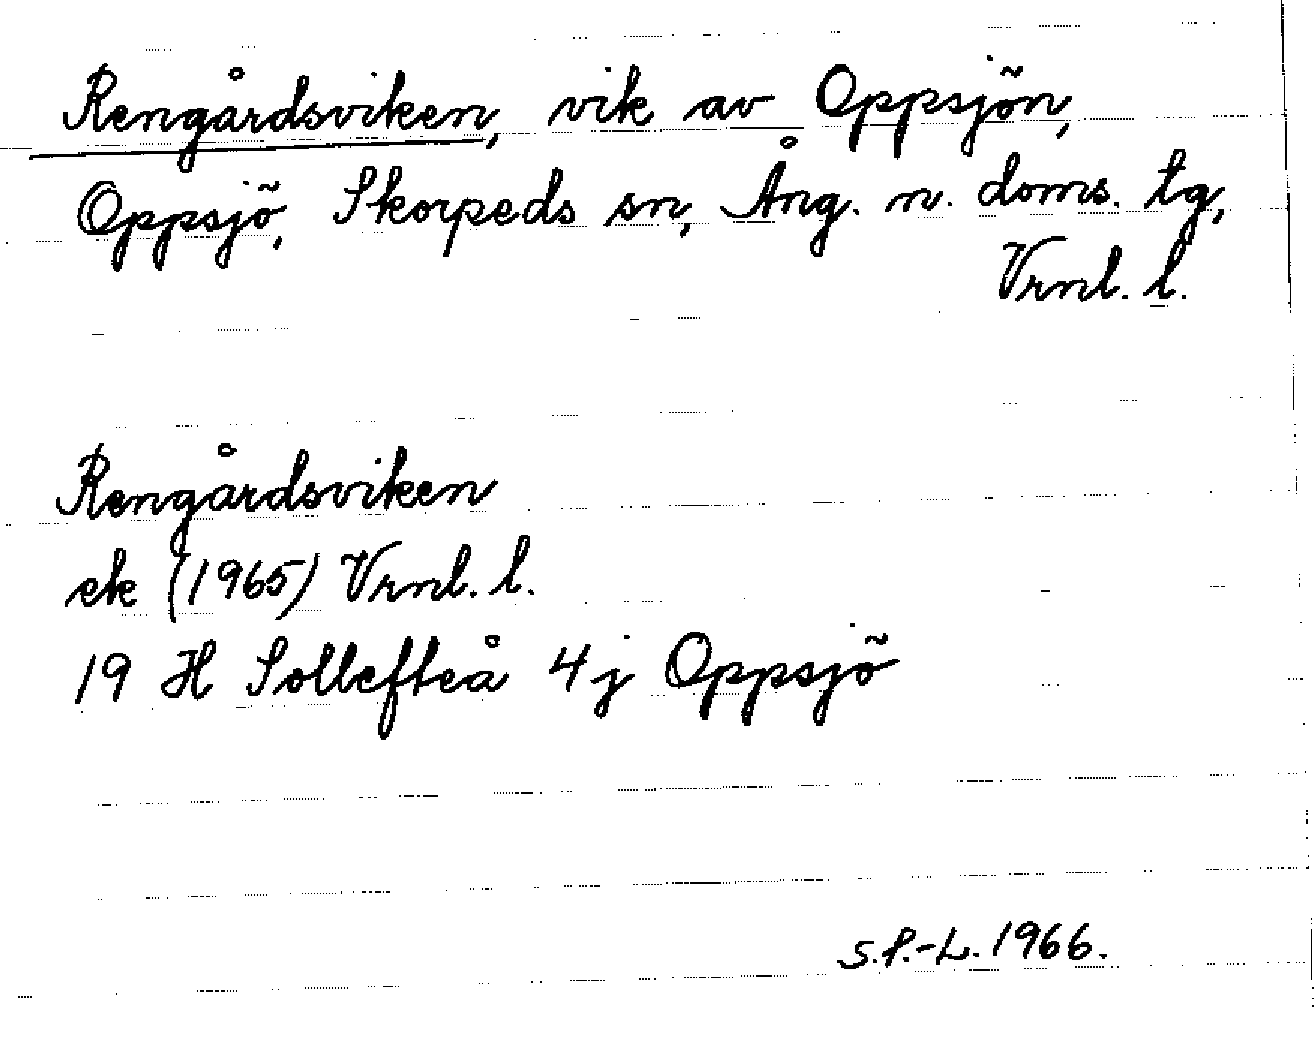 Rengårdsviken, vik av Oppsjön,
Oppsjö, Skorpeds sn, Ång. n. doms. tg,
Vrnl. l.
Rengårdsviken
ek (1965) Vrnl. l.
19 H Sollefteå 4j Oppsjö
S.P.-L. 1966.